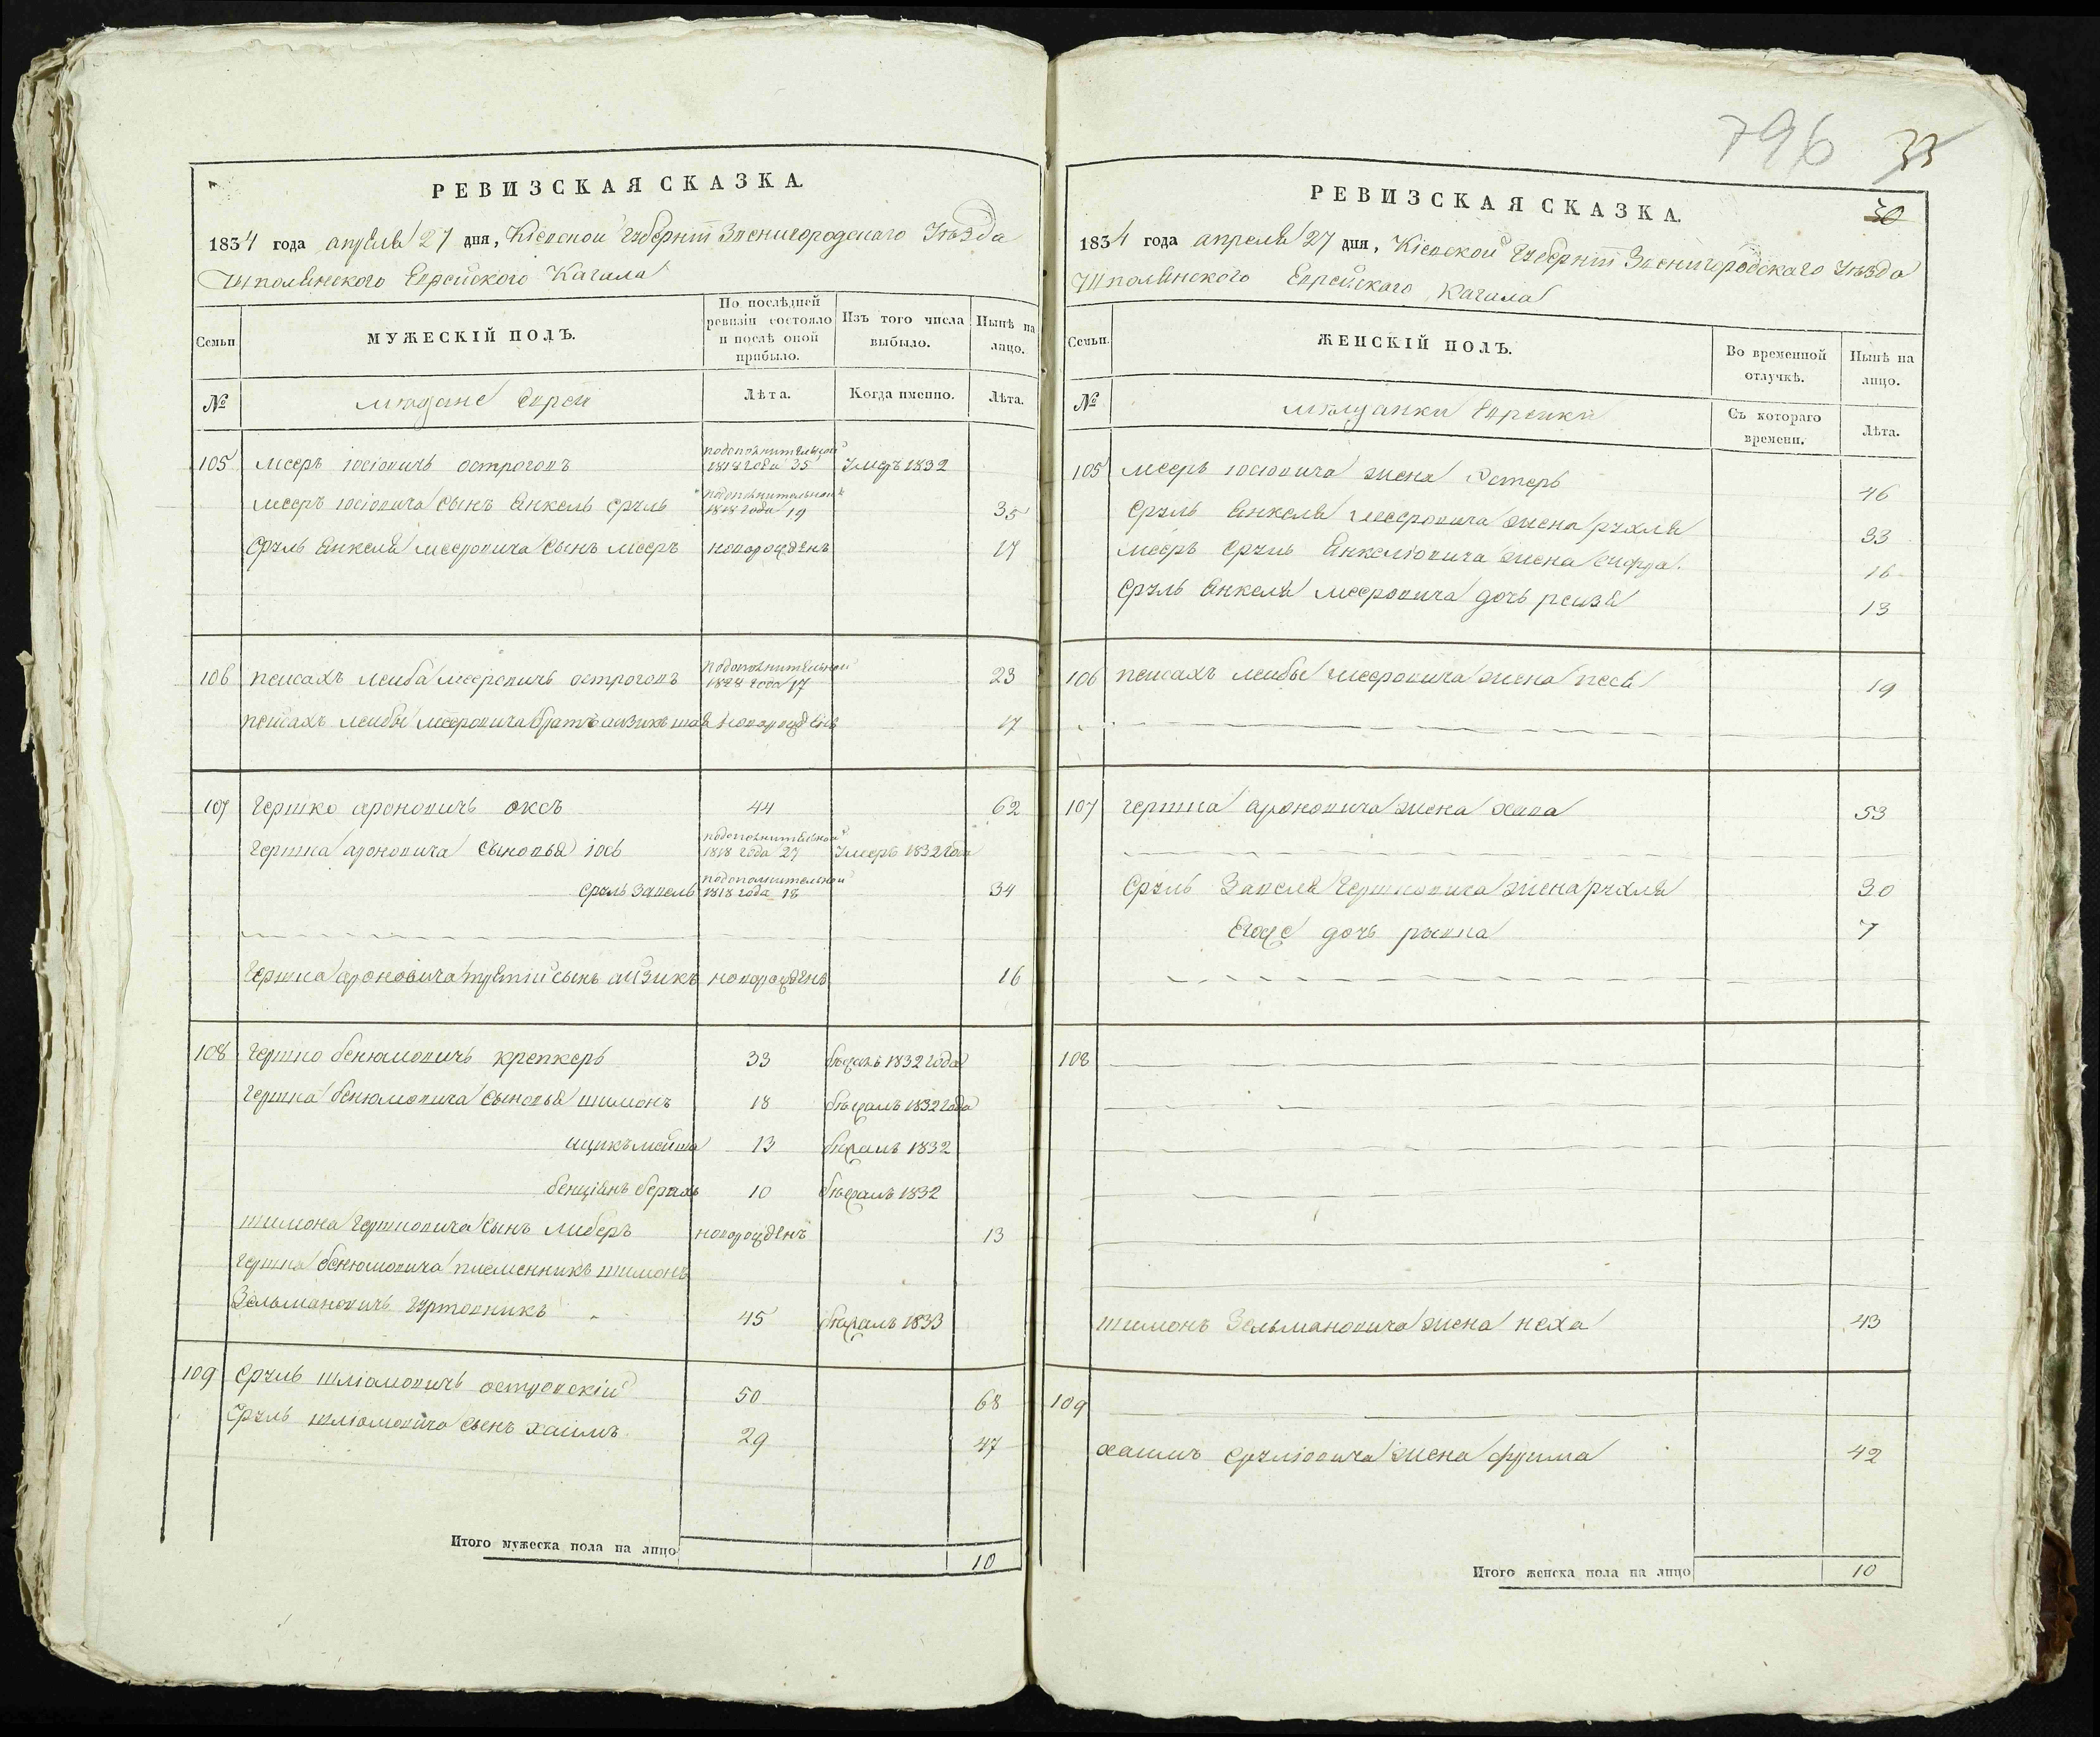 РЕВИЗСКАЯ СКАЗКА.
1834 года апреля 27 дня, Кіевской Губерніи Звенигородскаго Уѣзда
Шполянского Еврейского Кагала
Семьи
МУЖЕСКІЙ ПОЛЪ.
По послѣдней ревизіи состояло и послѣ оной прибыло.
Изъ того числа выбыло.
Нынѣ на лицо.
№
мещане евреи
Лѣта.
Когда именно.
Лѣта.
105 Мееръ Іосіовичъ Острогопъ по дополнительной 1818 года 35 Умеръ 1832
Мееръ Іосіовича сынъ Янкель Сруль по дополнительной 1818 года 19 35
Сруль Янкеля Мееровича сынъ Мееръ новорожденъ 17
106 Пейсахъ Лейба Мееровичъ Острогопъ по дополнительной 1828 года 17 23
Пейсахъ Лейбы Мееровича братъ новорожденъ 17
107 Гершко Ароновичъ Оксъ 44 62
Гершка Ароновича сыновья Іось по дополнительной 1818 года 27 Умеръ 1832 года
Сруль Запель по дополнительной 1818 года 18 34
Гершка Ароновича третій сынъ Айзикъ новорожденъ 16
108 Гершко Бенюмовичъ Крепкеръ 33 бѣжалъ 1832 года
Гершка Бенюмовича сыновья Шимонъ 18 бѣжалъ 1832 года
Ицикъ Мейша 13 бѣжалъ 1832
Бенціянъ Берахъ 10 бѣжалъ 1832
Шимона Гершковича сынъ Либеръ новорожденъ 13
Гершка Бенюмовича племенникъ Шимонъ
Зельмановичъ Гуртовникъ 45 бѣжалъ 1833
109 Сруль Шліомовичъ Островскій 50 68
Сруль Шліомовича сынъ Хаимъ 29 47
Итого мужеска пола на лицо 10
796 33
30
РЕВИЗСКАЯ СКАЗКА.
1834 года апреля 27 дня, Кіевской Губерніи Звенигородскаго Уѣзда
Шполянского Еврейскаго Кагала
Семьи.
ЖЕНСКІЙ ПОЛЪ.
Во временной отлучкѣ.
Нынѣ на лицо.
№
мещанки еврейки
Съ котораго времени.
Лѣта.
105 Мееръ Іосіовича жена Эстеръ 46
Сруль Янкеля Мееровича жена Рухля 33
Мееръ Сруль Янкеліовича жена 16
Сруль Янкеля Мееровича дочь Рейзя 13
106 Пейсахъ Лейбы Мееровича жена Песя 19
107 Гершка Ароновича жена Хава 53
Сруль Запеля Гершковича жена Рухля 30
Егоже дочь Рывка 7
108
Шимонъ Зельмановича жена Неха 43
109
Хаимъ Сруліовича жена Фрима 42
Итого женска пола на лицо 10